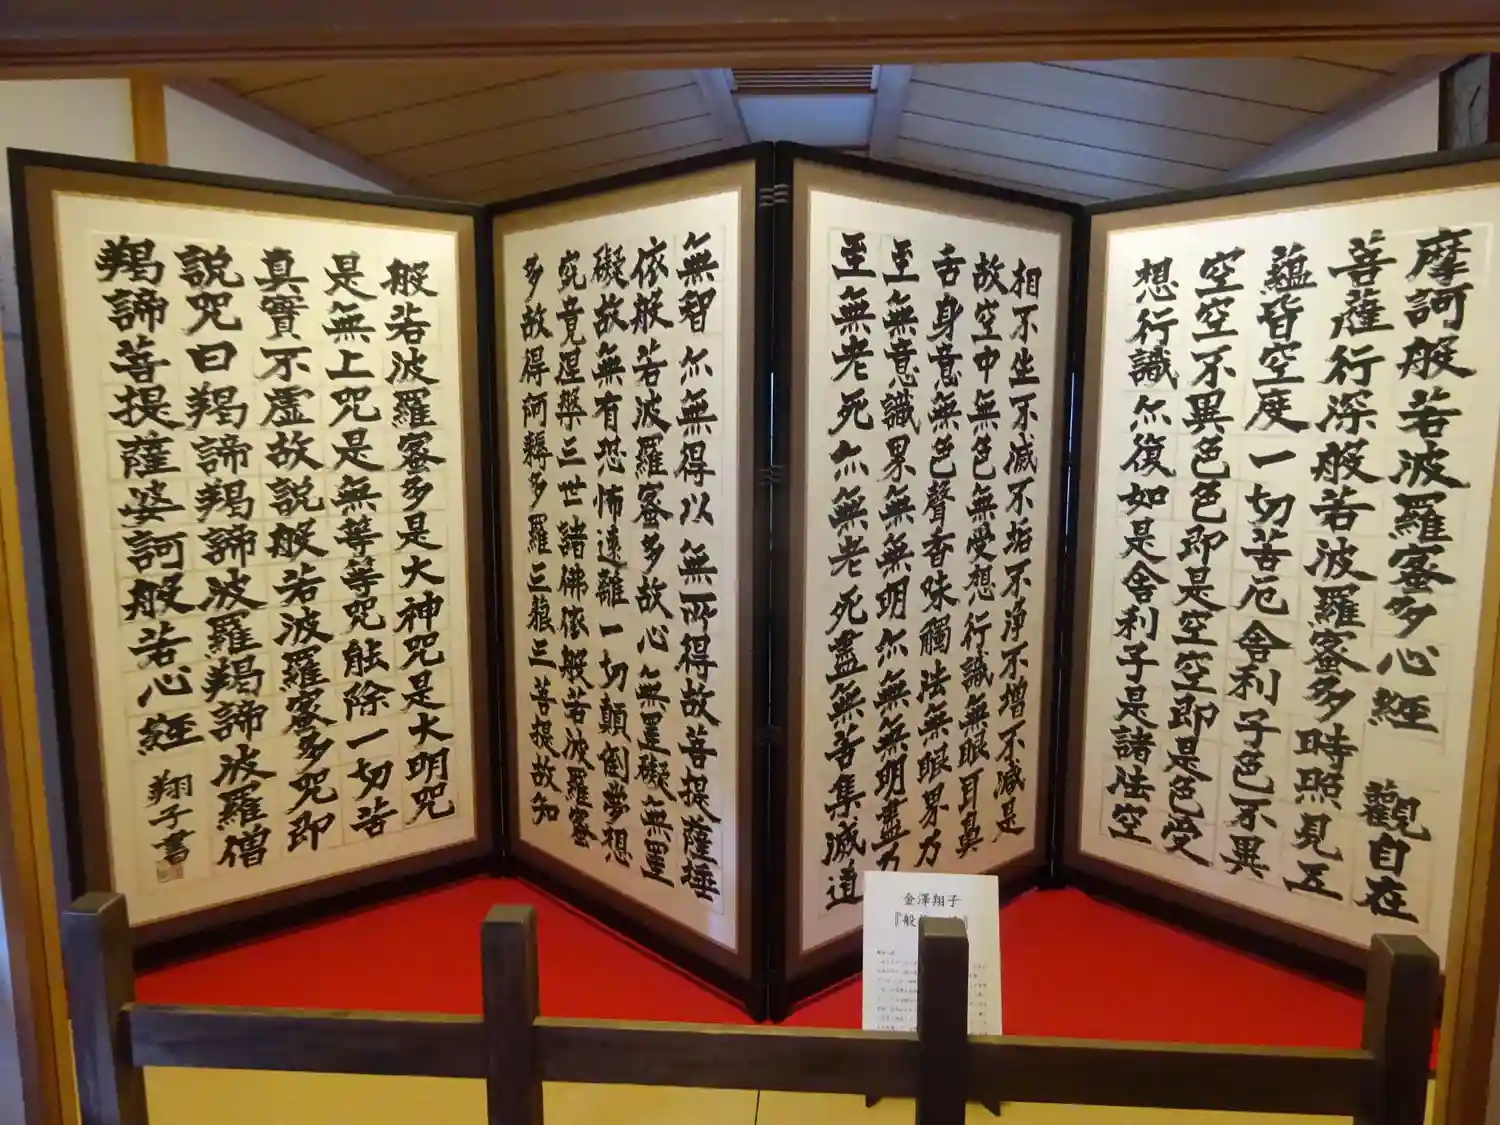 摩訶般若波羅蜜多心經 觀自在
菩薩行深般若波羅蜜多時照見五
蘊皆空度一切苦厄舍利子色不異
空空不異色色即是空空即是色受
想行識亦復如是舍利子是諸法空
相不生不滅不垢不淨不增不減是
故空中無色無受想行識無眼耳鼻
舌身意無色聲香味觸法無眼界乃
至無意識界無無明亦無無明盡乃
至無老死亦無老死盡無苦集滅道
無智亦無得以無所得故菩提薩埵
依般若波羅蜜多故心無罣礙無罣
礙故無有恐怖遠離一切顛倒夢想
究竟涅槃三世諸佛依般若波羅蜜
多故得阿耨多羅三藐三菩提故知
般若波羅蜜多是大神咒是大明咒
是無上咒是無等等咒能除一切苦
真實不虛故說般若波羅蜜多咒即
說咒曰羯諦羯諦波羅羯諦波羅僧
羯諦菩提薩婆訶般若心經 翔子書
金澤翔子
『般